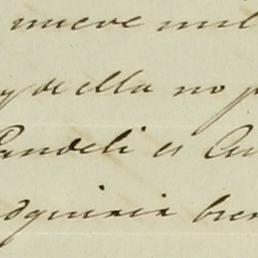 nueve mil
y de ella no p
Pandeli es Au
adquirir bien